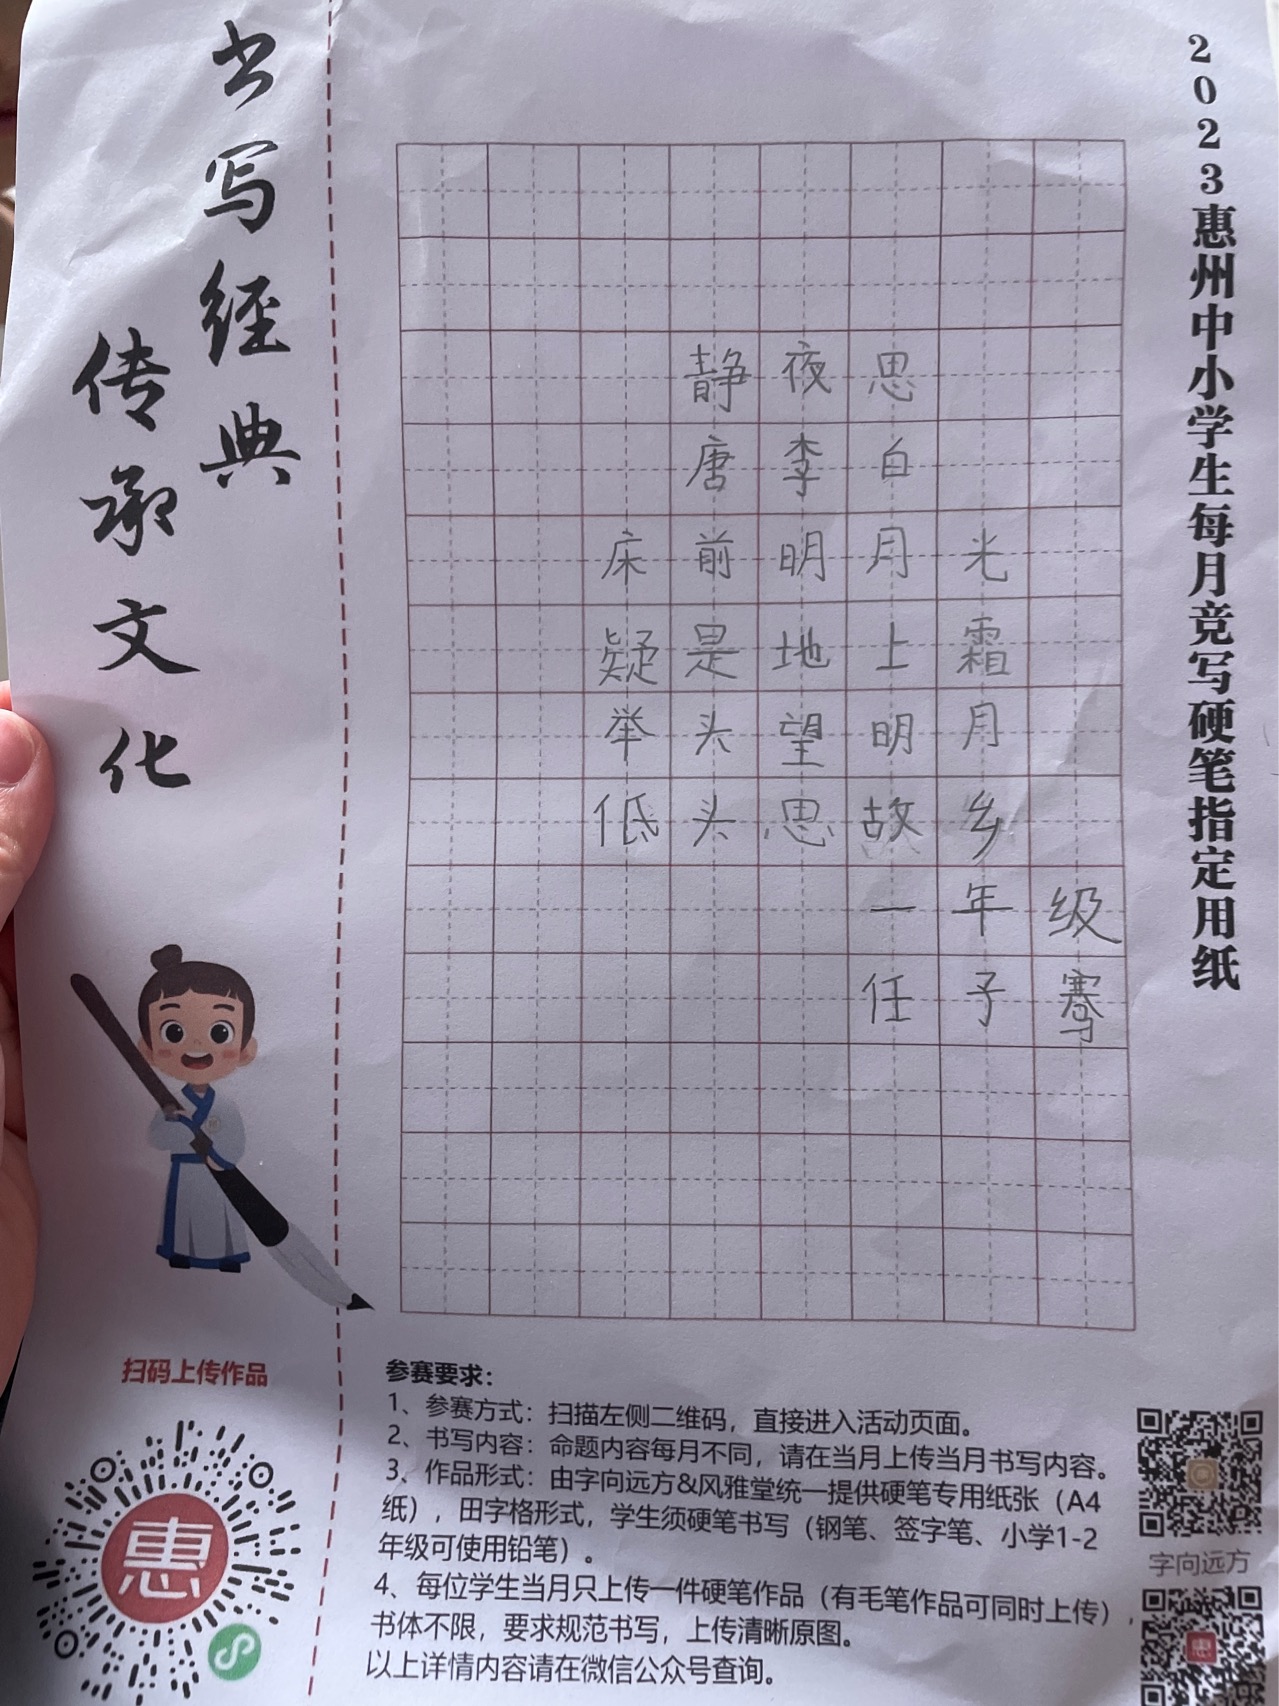 书写经典
传承文化
2023惠州中小学生每月竞写硬笔指定用纸
静夜思
唐李白
床前明月光
疑是地上霜
举头望明月
低头思故乡
一年级
任子骞
扫码上传作品
惠
参赛要求：
1、参赛方式：扫描左侧二维码，直接进入活动页面。
2、书写内容：命题内容每月不同，请在当月上传当月书写内容。
3、作品形式：由字向远方&风雅堂统一提供硬笔专用纸张（A4
纸），田字格形式，学生须硬笔书写（钢笔、签字笔、小学1-2
年级可使用铅笔）。
4、每位学生当月只上传一件硬笔作品（有毛笔作品可同时上传），
书体不限，要求规范书写，上传清晰原图。
以上详情内容请在微信公众号查询。
字向远方
惠